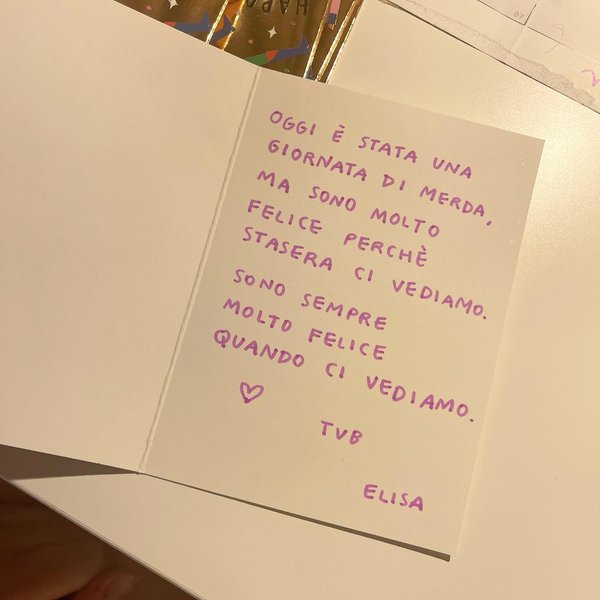 HAPP
OGGI È STATA UNA
GIORNATA DI MERDA,
MA SONO MOLTO
FELICE PERCHÈ
STASERA CI VEDIAMO.
SONO SEMPRE
MOLTO FELICE
QUANDO CI VEDIAMO.
♡
TVB
ELISA